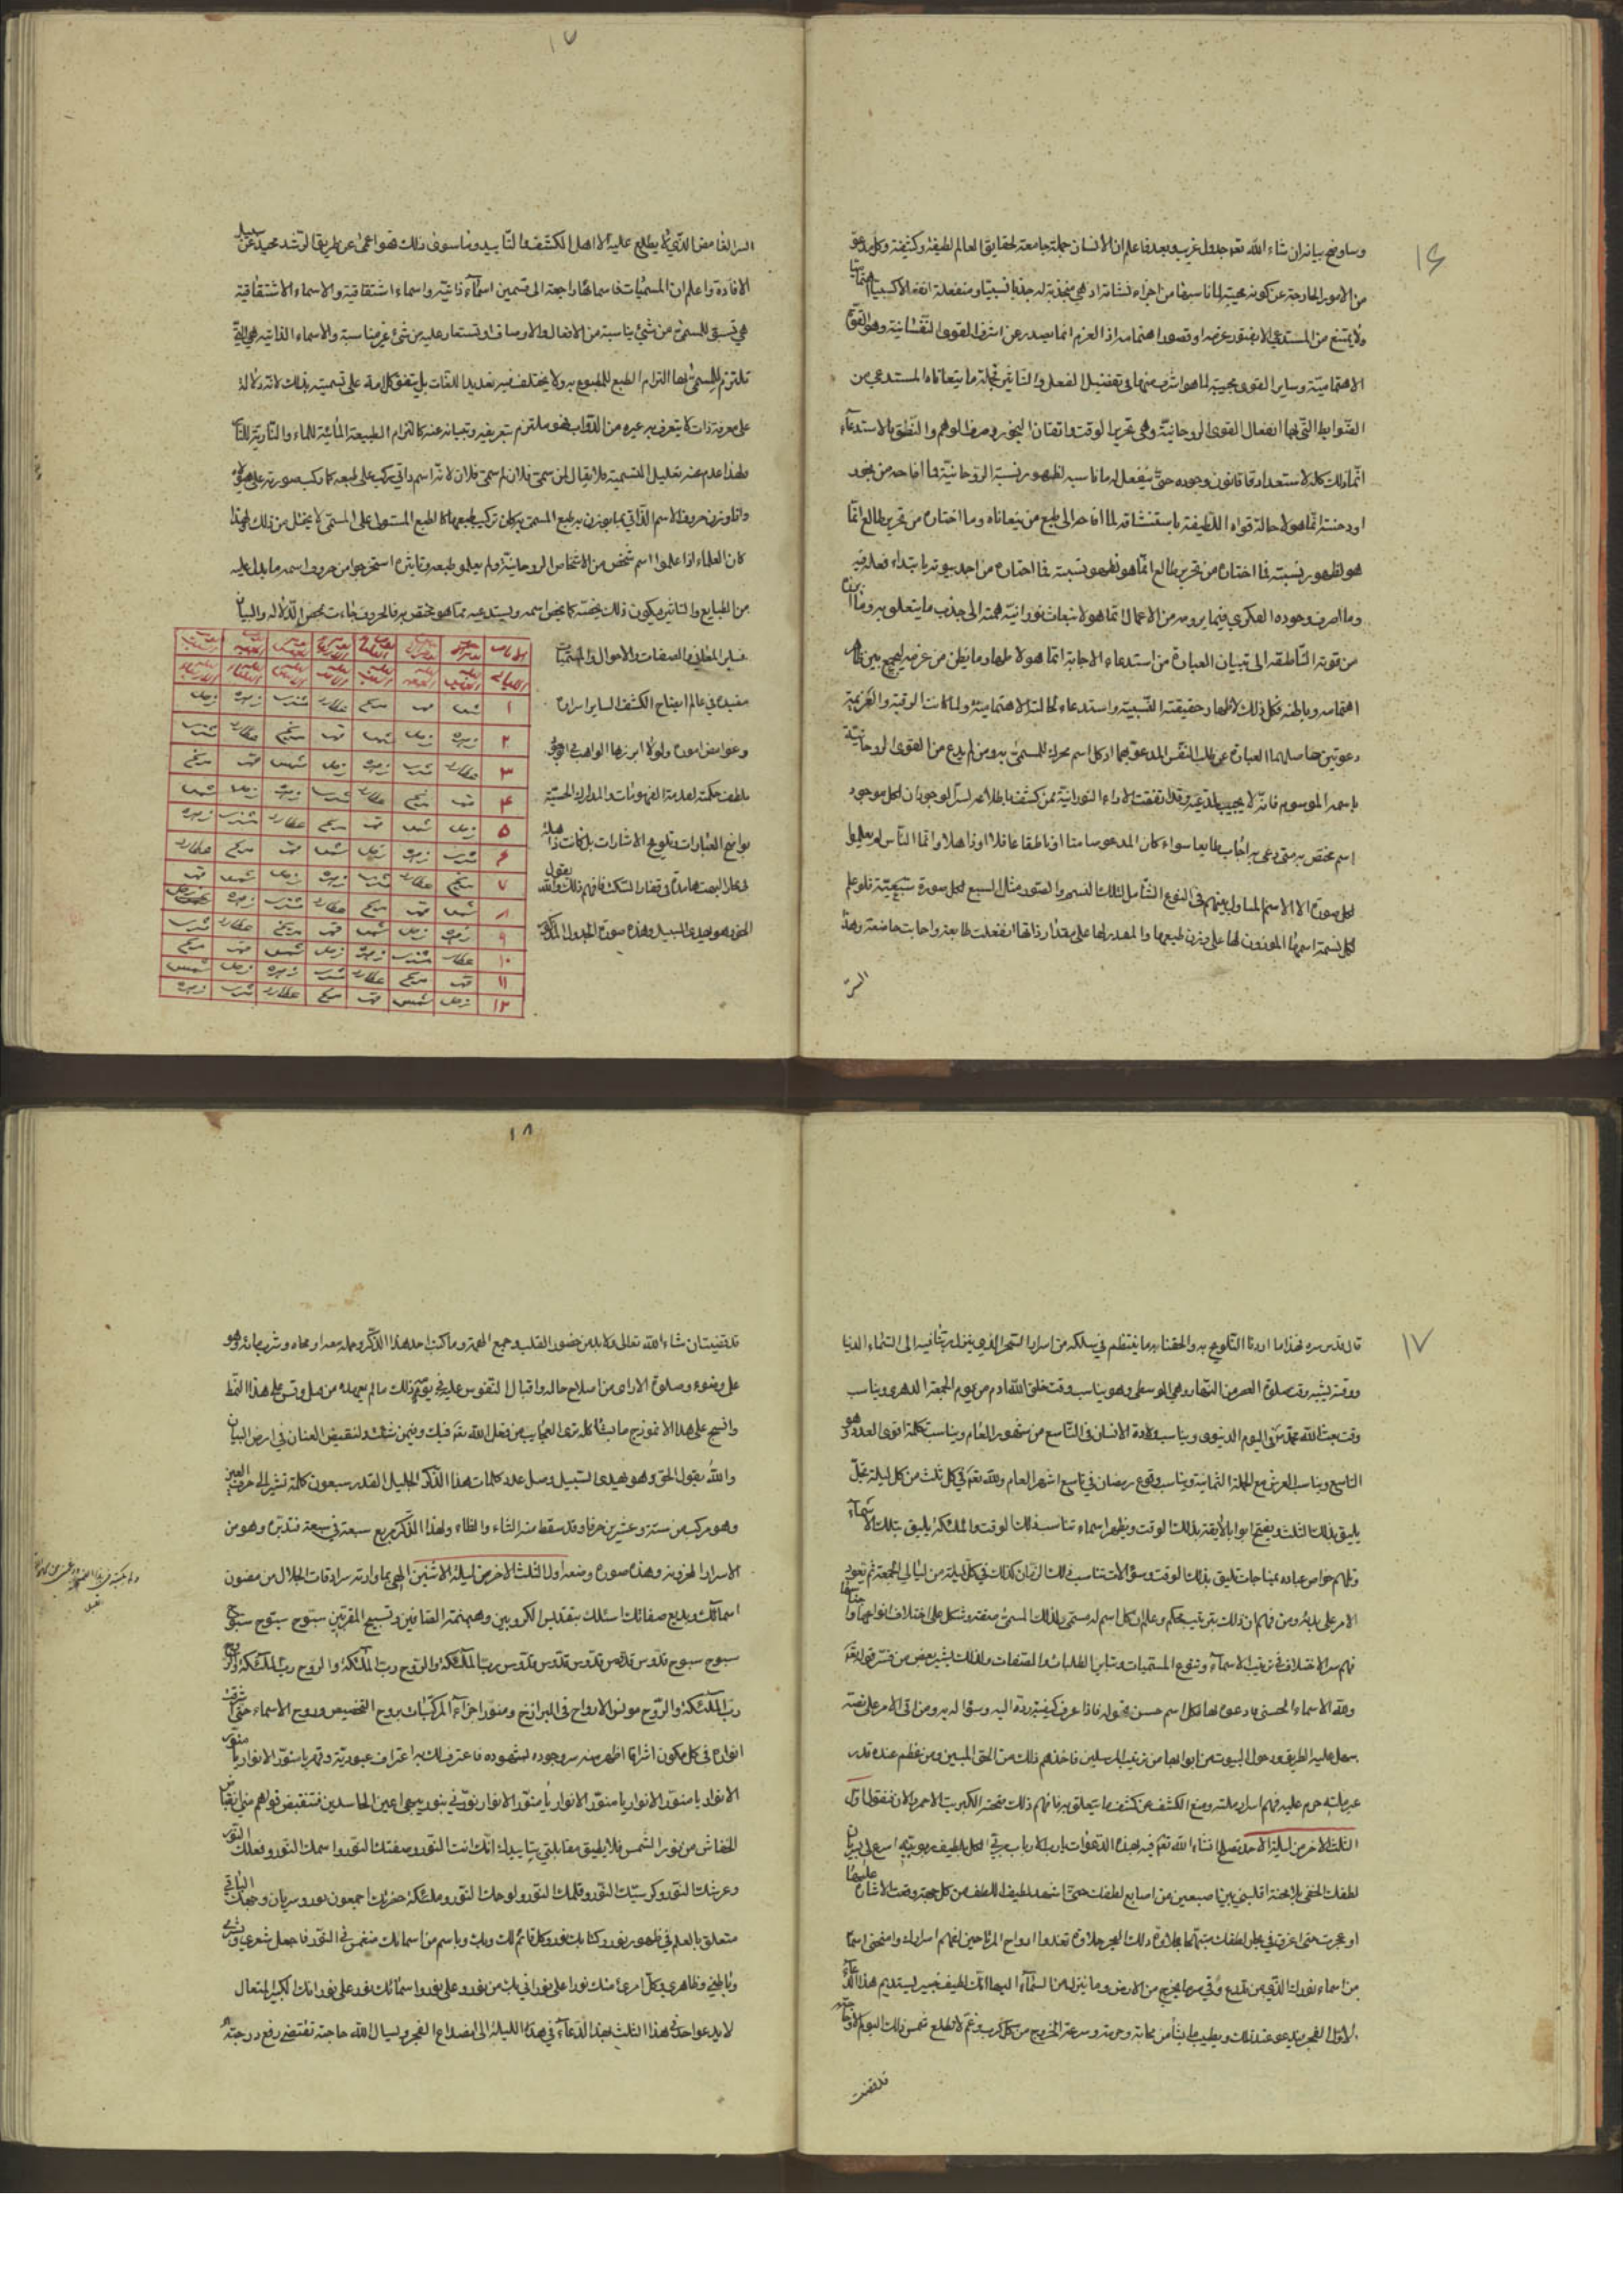 ١٦
وساوضح بيانه ان شاء الله تعه جدول غريب وبعد فاعلم ان الانسان جملة جامعة لحقايق العالم لطيفه وكثيفه وكل مدعو
من الامور الخارجة عن كونه مجيبة لما ناسبها من اجزاء نشاته اذ هي منجذبة له جذبا نسبيا ومنفعلة انفعالا كسبيا
ولا يمتنع من المستدعي الا بفتور عزمه او قصور اهتمامه اذ العزم انما يصدر عن اشرف القوى النفسانية وهو القوة
الاهتمامية وساير القوى مجيبة لما هو اشرف منها في تفضيل الفعل والتاثير فجملة ما يتعاناه المستدعي من
الضوابط التي بها انفعال القوى الروحانية وهي تحرير الوقت واتقان البخور وصرف الوهم والنطق بالاستدعاء
انما ذلك كله لاستعداد قانون وجوده حتى ينفعل له ما ناسبه لظهور نسبة الروحانية فما افاحه من بخور
او دخنة انما هو لاحالة قواه اللطيفة باستنشاقه لما افاحه الى طبع من يتعاناه وما اختاره من تحرير طالع انما
هو لظهور نسبته فما اختاره من تحرير طالع انما هو لظهور نسبته فما اختاره من اجد بيوته بابتداء فعله فيه
وما اصرف وجوده الفكري فيما يرومه من الاعمال انما هو لانبعاث نورانية همته الى جذب ما يتعلق به وما
من قوته الناطقة الى تبيان العبارة من استدعاء الاجابة انما هو لاظهار ما بطن من عزمه ليجمع بين ظاهر
اهتمامه وباطنه فكل ذلك لاظهار حقيقته النسبية واستدعاء لحالته الاهتمامية ولما كانت الرقية والعزيمة
دعوتين حاصلهما العبارة عن طلب النفس المدعو بهما اذ كل اسم محرك للمسمى به ومن لم يدع من القوى الروحانية
باسمه الموسوم فانه لا يجيب لداعيه وقد اتفقت الاراء النورانية ممن كشف باطلاعه لسر الوجود ان لكل موجود
اسم مختص به متى دعي به اجاب طايعا سواء كان المدعو صامتا او ناطقا عاقلا او ذاهلا وانما الناس لم يعلموا
لكل صورة الا الاسم المتداول بينهم في النوع الشامل لتلك النسم والصور مثال السبع لكل صورة سبعية فلو علم
لكل نسمة اسمها الموزون لها على وزن طبيعها والمقدر لها على مقدار ذاتها انفعلت طايعة واجابت خاضعة وهذا
السر
١٧
السر الغامض الذي لا يطلع عليه الا اهل الكشف والتاييد وما سوى ذلك فهو اعمى عن طريق الرشد محيد عن سبيل
الافادة واعلم ان المسميات فاسماؤها راجعة الى قسمين اسماء ذاتية واسماء اشتقاقية والاسماء الاشتقاقية
هي تسبق للمسمى من شيئ يناسبه من الافعال والاوصاف او تستعار عليه من شئ غير مناسبة والاسماء الذاتية هي التي
تلتزم للمسمى بها التزام الطبع للمطبوع به ولا يختلف فيه تعديد اللغات بل يتفق كل امة على تسميته بذلك لانه دلالة
على معرفة ذات لا يتعرف به غيره من الذوات فهو ملتزم بتعريفه وتبيانه عنه كالتزام الطبيعة المائية للماء والنارية للنار
ولهذا عدم عنه تعليل التسمية فلا يقال لمن سمى فلان لم سمى فلان لانه اسم ذاتي مركب على طبعه كما ركب صورته على هيولاه
واتا وزن حروف الاسم الذاتي بما يوزن به طبع المسمى به كان تركيب طبعها كالطبع المستولى على المسمى لا يختل من ذلك ولهذا
كان العلماء اذا علموا اسم شخص من الاشخاص الروحانية ولم يعلموا طبعه وتاثيره استخرجوا من حروف اسمه ما يدل عليه
من الطبايع والتاثير ويكون ذلك يخصه كما يخص اسمه ويستدعيه مما هو مختص به فالحروف جاءت بمحض الدلالة والبيان
فساير المعاني والصفات والاحوال والجسميات
مفيدة في عالم ايضاح الكشف الساير اسراره
وغوامض اموره ولولا ابرزها الواهب في الوجود
بلطف حكمته لعادمة الفهوميات والمدارك الحسية
بواضح العبارات وتلويح الاشارات بل كانت ذاهلة
في مجار البحث هايمة في قفار الشك فافهم ذلك والله يقول
الحق وهو يهدي السبيل وهذه صورة الجدول المذكور
١ شمس قمر مريخ عطارد مشتري زهره زحل
٢ زهره زحل شمس قمر مريخ عطارد مشتري
٣ عطارد مشتري زهره زحل شمس قمر مريخ
۴ قمر مريخ عطارد مشتري زهره زحل شمس
۵ زحل شمس قمر مريخ عطارد مشتري زهره
۶ مشتري زهره زحل شمس قمر مريخ عطارد
٧ مريخ عطارد مشتري زهره زحل شمس قمر
٨ شمس قمر مريخ عطارد مشتري زهره زحل
٩ زهره زحل شمس قمر مريخ عطارد مشتري
١٠ عطارد مشتري زهره زحل شمس قمر مريخ
١١ قمر مريخ عطارد مشتري زهره زحل شمس
١٢ زحل شمس قمر مريخ عطارد مشتري زهره
١٧
قال قدس سره فهذا ما اردنا التلويح به والحقنا به ما ينتظم في سلكه من اسرار السحر الذي ينزل ربنا فيه الى السماء الدنيا
ووقته يشبه وقت صلوة العصر من النهار وهي الوسطى وهو يناسب وقت خلق الله ادم من يوم الجمعة الدهري ويناسب
وقت بعث الله محمد في اليوم الدنيوي ويناسب ولادة الانسان في التاسع من شهور العام ويناسب تكلمه اقوى العدد وهو
التاسع ويناسب العرش مع الحملة الثمانية ويناسب وقوع رمضان في تاسع اشهر العام ولله تعه في كل ثلث من كل ليلة تجل
يليق بذلك الثلث ويفتح ابوابا لايقة بذلك الوقت ويظهر اسماء تناسب ذلك الوقت والملئكة يليق بتلك الاسماء
ويلهم خواص عباده بمناجات تليق بذلك الوقت وسؤالات تناسب ذلك الزمان كذلك في كل ليلة من ليالي الجمعة ثم يعود
الامر على بدئه ومن فهم ان ذلك بترتيب محكم وعلم ان كل اسم له مسمى ولذلك المسمى صفة وشكل على اختلاف انواعها واجناسها
فهم سر الاختلاف في ترتيب الاسماء وتنوع المسميات وتباين الطلبات والصفات ولذلك يشير بعض من فسر قوله تعه
ولله الاسماء الحسنى فادعوه بها فكل اسم حسن مقوله فاذا عرف كيفية رده اليه وسؤاله به ومن اتى الامر على نصه
سهل عليه الطريق ودخول البيوت من ابوابها من ترتيب المرسلين فاخذهم ذلك من الحق المبين ومن عظم عنده قدر
عبر ملته حرم عليه فهم اسرار ملته ومنع الكشف عن كشف ما يتعلق به فافهم ذلك فهو الكبريت الاحمر والان فنقول اول
الثلث الاخر من ليلة الاحد تصلح انشاء الله تعه فيه بهذه الدعوات يا رب الارباب مربي الكل بلطيف ربوبيته اسرع الي سريان
لطفك الخفي بلا محنة اقلبني بين اصبعين من اصابع لطفك حتى اشهد لطيف اللطف من كل جهة وقعت الاشارة عليها
او عجزت حتى اغرق في بحر لطفك متنعما بحلاوة ذلك البحر حلاوة تغذوا ارواح المرتاحين لفهم اسرارك وامنحني اسما
من اسماء نورك الذي من تدرع وقي شر ما يخرج من الارض وما ينزل من السماء اليها انك لطيف خبير يستديم هذا الدعاء
لاول الفجر يدعو عند ذلك ويطيب ما يشا من نجاته ورحمة وسرعة الخروج من كل كرب وغم لا تطلع شمس ذلك اليوم الا وحاجته
قد قضيت
١٨
قد قضيت ان شاء الله تعالى ولا بد من حضور القلب وجمع الهمة وما كتب احد هذا الذكر وحمله معه او محاه وشرب مائه وهو
على وضوء وصلوة الا راى من اصلاح حاله واقبال النفوس عليه في يوم ذلك ما لم يعهده من قبل وقس على هذا النمط
وانسج على هذا الانموذج ما يشاكله ترى العجايب من فعل الله تعه فيك وفيمن شئت ولنقبض العنان في ارض البيان
والله يقول الحق وهو يهدي السبيل وصل عدد كلمات هذا الذكر الجليل القدر سبعون كلمة تشير الى حرف العين
وهو مركب من ستة وعشرين حرفا وقد سقط منه الثاء والظاء ولهذا الذكر مربع سبعة في سبعة فتدبره وهو من
الاسرار المخزونة وهذه صورة وضعه اول الثلث الاخر من ليلة الاثنين الهي بما وارته سرادقات الجلال من مصون
اسمائك وبديع صفاتك اسئلك بتقديس الكروبين وهيمنة الصافين وتسبيح المقربين سبوح سبوح سبوح
سبوح سبوح قدوس قدوس قدوس قدوس قدوس رب الملئكة والروح رب الملئكة والروح رب الملئكة والروح
رب الملئكة والروح مونس الارواح في البرازخ ومنور اجزاء المركبات بروح التخصيص وروح الاسماء حتى اشرقت
انواره في كل مكون اشراقا اظهر منه سر وجوده لشهوده فاعترف لك به اعتراف عبودية وقهر يا منور الانوار يا منور
الانوار يا منور الانوار يا منور الانوار يا منور الانوار نورني بنور يبهي اعين الحاسدين فتنقبض قواهم مني انقباض
الخفاش من نور الشمس فلا يطيق مقابلتي بتاييدك انك انت النور وصفتك النور واسمك النور وفعلك النور
وعرشك النور وكرسيك النور وقلمك النور ولوحك النور وملئكة حضرتك اجمعون نور وسريان وجهك الباقي
متعلق بالعلم في ظهور نور وكتابك نور وكل قائم لك وبك وباسم من اسمائك منغمس في النور فاجعل شعري وبشري
وباطني وظاهري وكل امري منك نورا على نور انى بك من نور وعلى نور واسمائك نور على نور انك الكبير المتعال
لا يدعوا احد في هذا الثلث بهذا الدعاء في هذه الليلة الى انصداع الفجر ويسال الله حاجته تقتضي رفع درجته